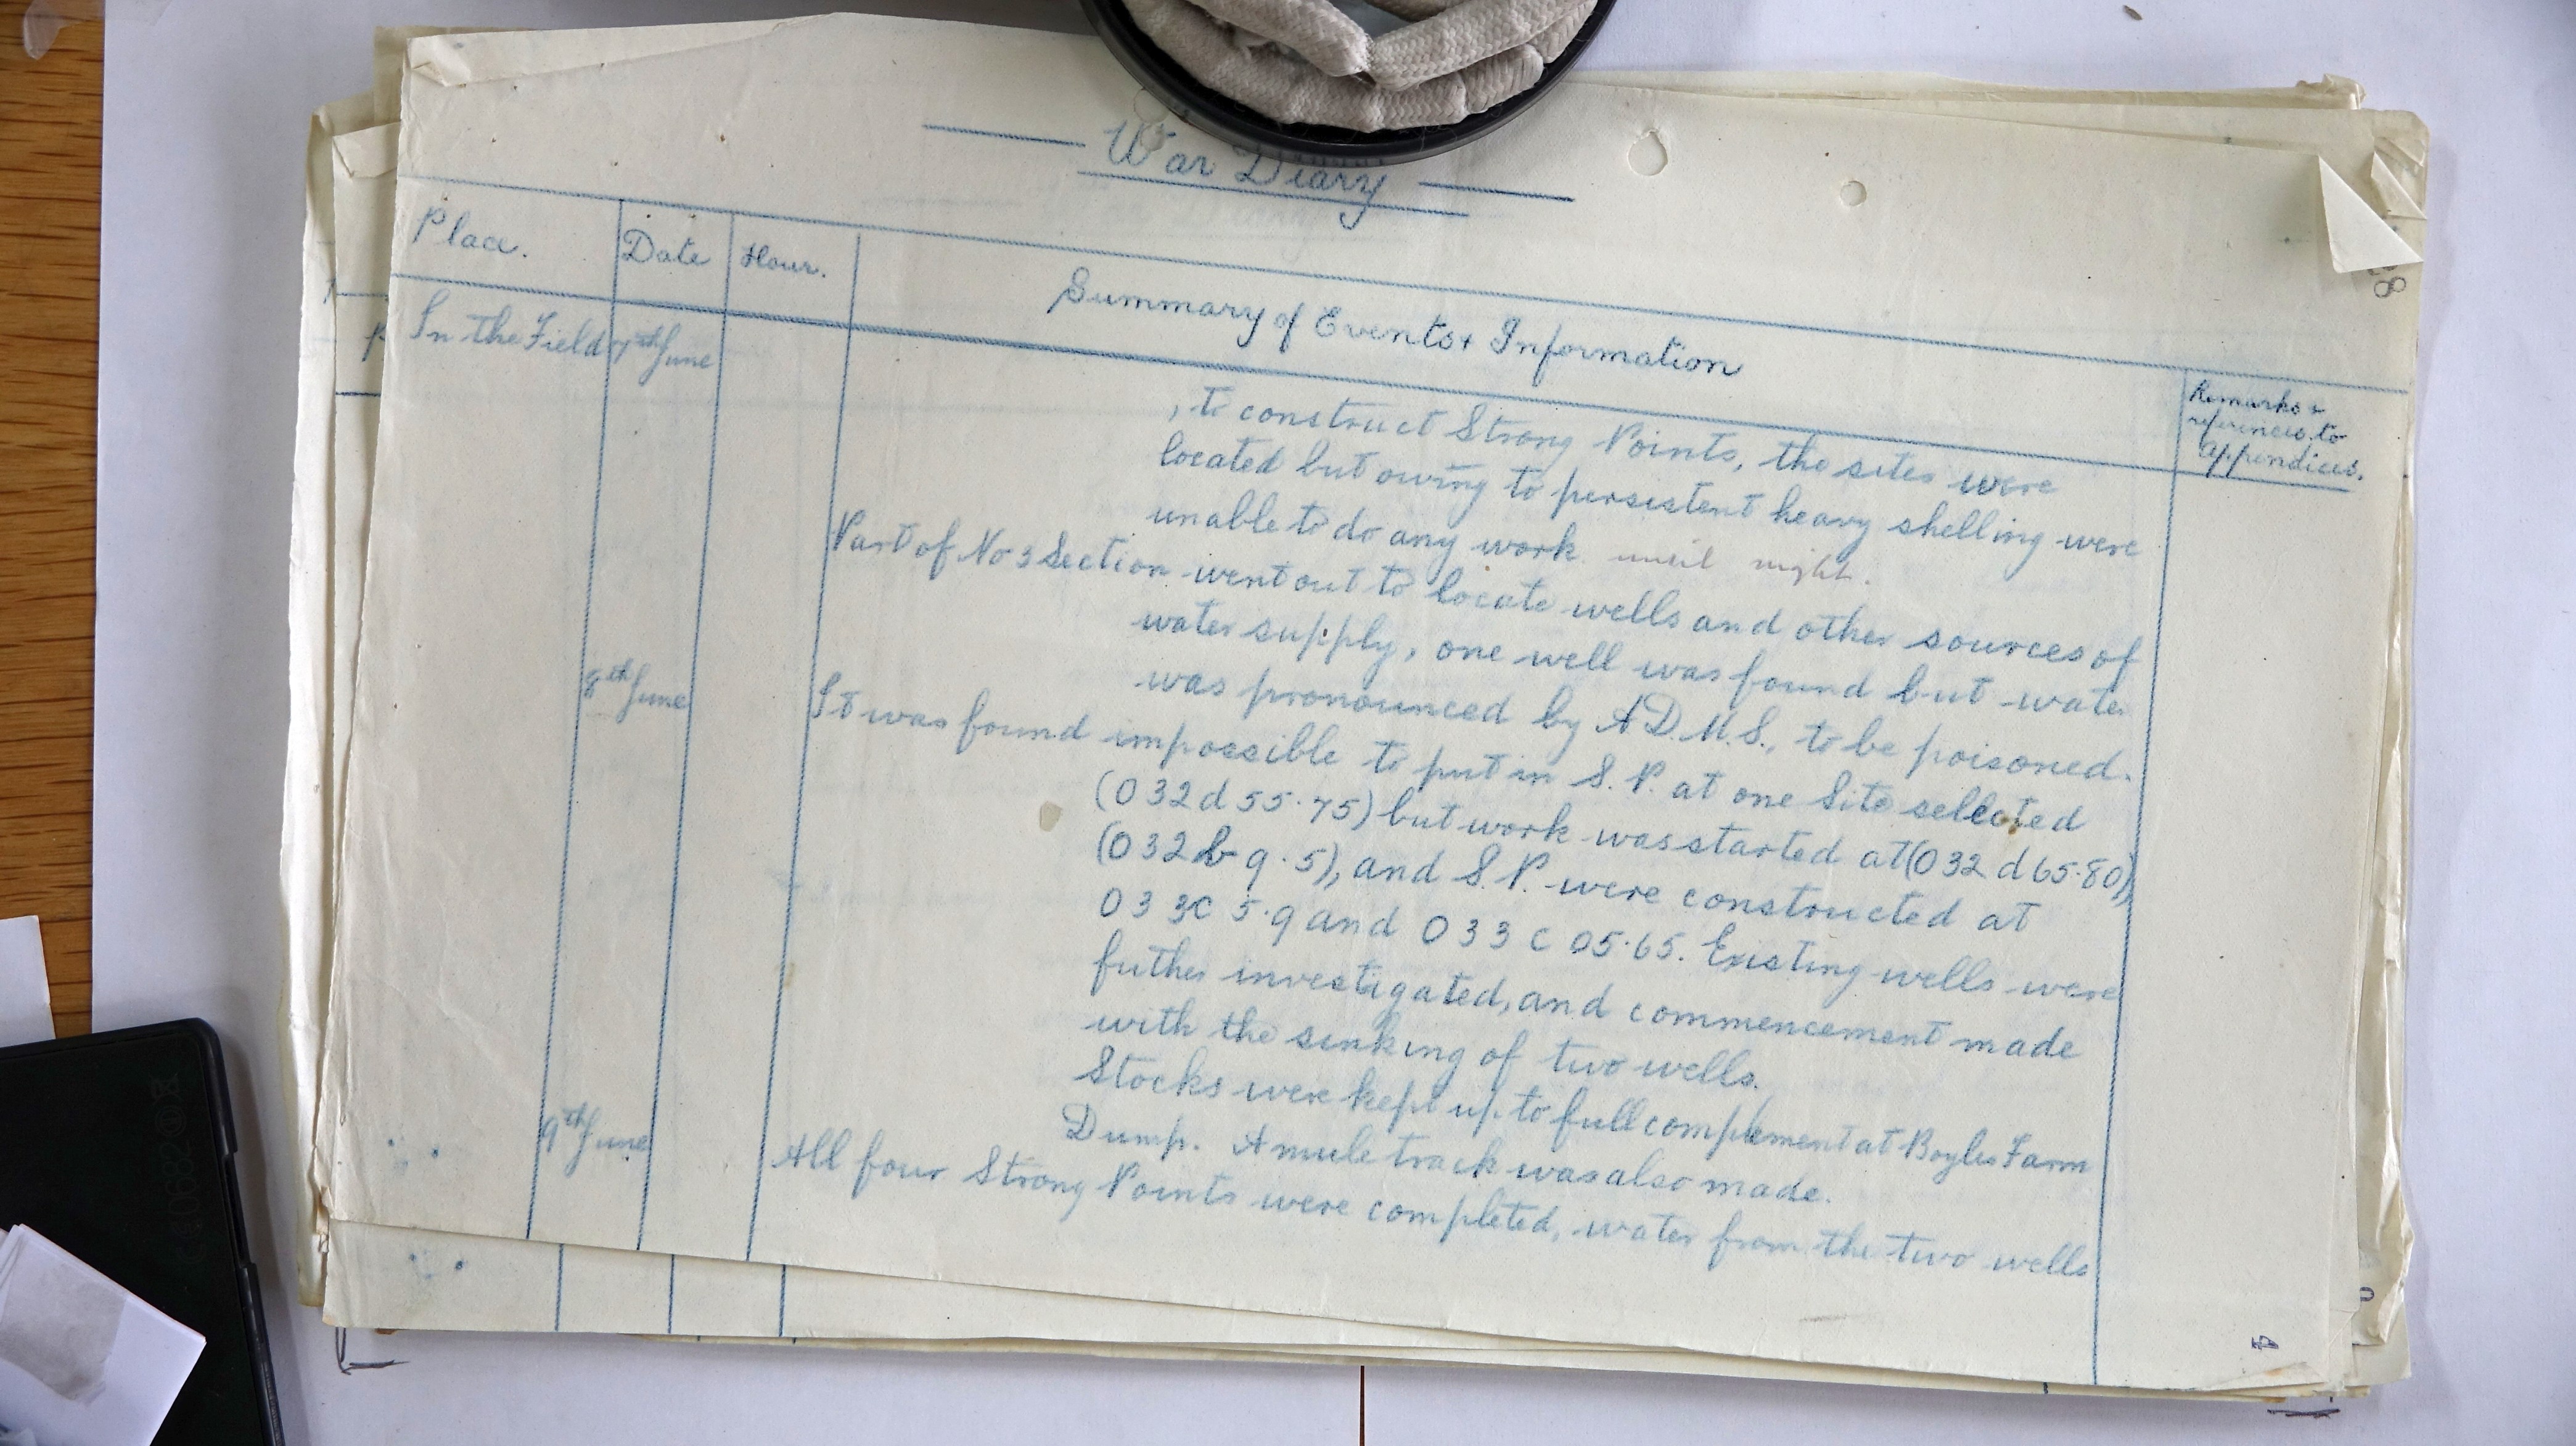 War Diary
Place.
Date
Hour.
Summary of Events & Information
Remarks &
references to
appendices.
In the Field
7th June
, to construct Strong Points, the sites were
located but owing to persistent heavy shelling were
unable to do any work until night.
Part of No 3 Section went out to locate wells and other sources of
water supply, one well was found but water
was pronounced by A.D.M.S., to be poisoned.
8th June
It was found impossible to put in S.P. at one Site selected
(O32d 55.75) but work was started at (O32 d 65.80),
(O32b 9.5), and S.P. were constructed at
O33c 5.9 and O33 c 05.65. Existing wells were
futher investigated, and commencement made
with the sinking of two wells.
Stocks were kept up to full complement at Boyles Farm
Dump. A mule track was also made.
9th June
All four Strong Points were completed, water from the two wells
4